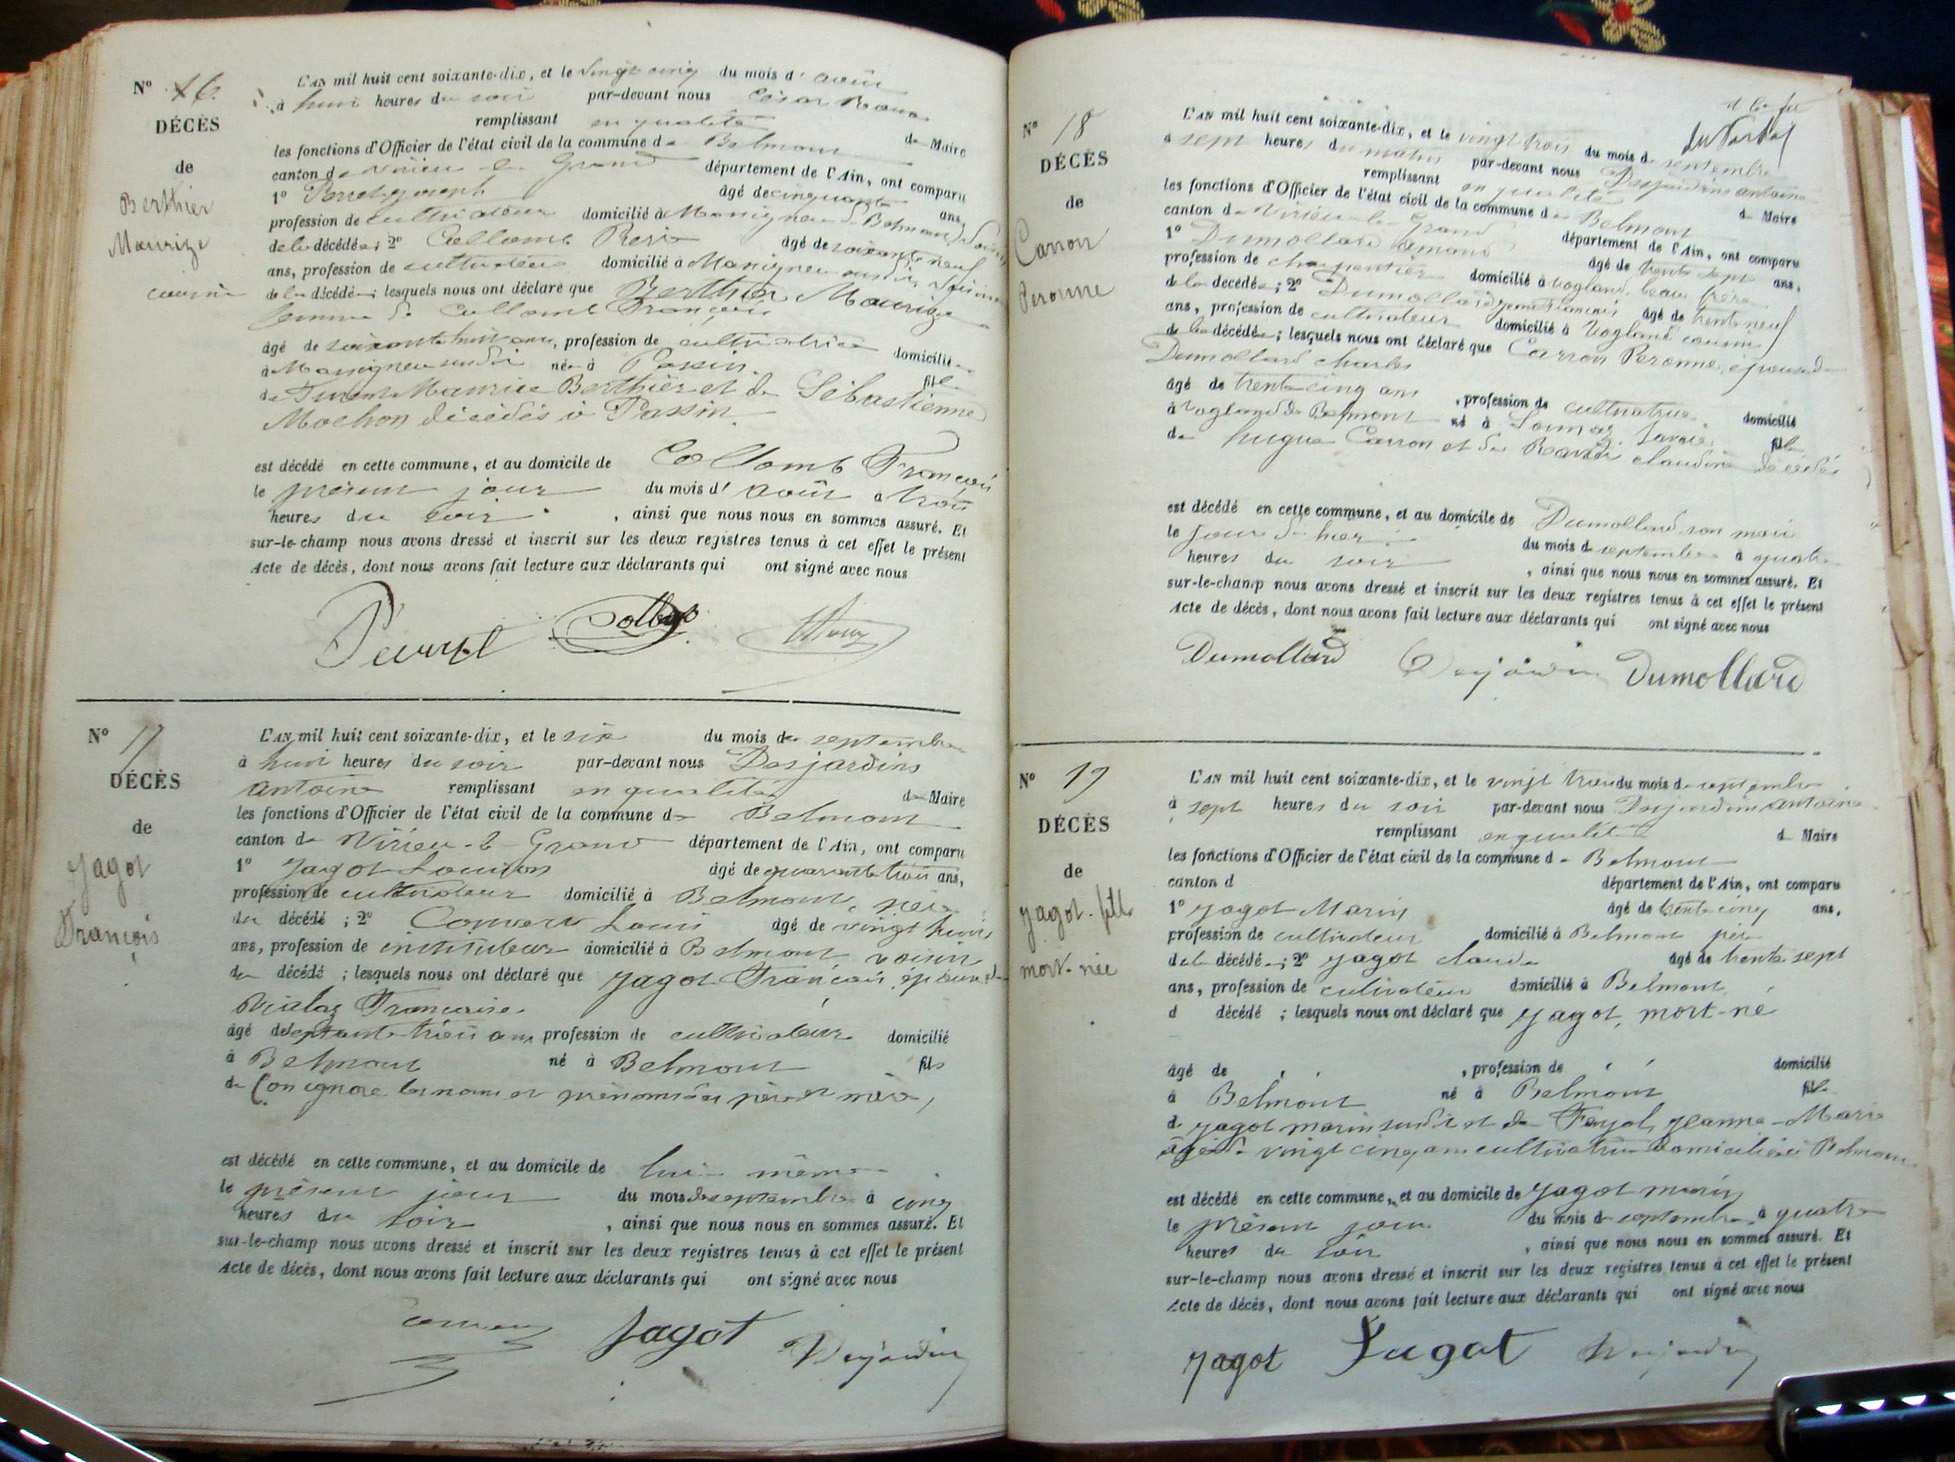 N° 16.
DÉCÈS
de
Berthier
Maurize
L'AN mil huit cent soixante-dix, et le vingt cinq du mois d' août
à huit heures du soir par-devant nous César
remplissant en qualité de Maire
les fonctions d'Officier de l'état civil de la commune de Belmont
canton de Virieu le Grand département de l'Ain, ont comparu
1° joseph âgé de cinquante ans,
profession de cultivateur domicilié à Massignieu de Belmont
de la décédée ; 2° Collomb âgé de soixante neuf
ans, profession de cultivateur domicilié à Massignieu susdit
de la décédée ; lesquels nous ont déclaré que Berthier Maurize
femme de Collomb François
âgé de soixante huit ans, profession de cultivatrice domicilié
à Massignieu susdit née à Passin fille
de Maurice Berthier et de Sébastienne
Mochon décédés à Passin.
est décédé en cette commune, et au domicile de Collomb François
le présent jour du mois d' août à trois
heures du soir , ainsi que nous nous en sommes assuré. Et
sur-le-champ nous avons dressé et inscrit sur les deux registres tenus à cet effet le présent
Acte de décès, dont nous avons fait lecture aux déclarants qui ont signé avec nous
N° 17
DÉCÈS
de
Jagot
François
L'AN mil huit cent soixante-dix, et le six du mois de septembre
à huit heures du soir par-devant nous Desjardins
antoine remplissant en qualité de Maire
les fonctions d'Officier de l'état civil de la commune de Belmont
canton de Virieu-le-Grand département de l'Ain, ont comparu
1° Jagot âgé de quarante trois ans,
profession de cultivateur domicilié à Belmont,
du décédé ; 2° Convert Louis âgé de vingt huit
ans, profession de instituteur domicilié à Belmont voisin
du décédé ; lesquels nous ont déclaré que Jagot François, époux de
Françoise.
âgé de septante-trois ans profession de cultivateur domicilié
à Belmont né à Belmont fils
de (on ignore les noms et prénoms des père et mère)
est décédé en cette commune, et au domicile de lui-même
le présent jour du mois de septembre à cinq
heures du soir , ainsi que nous nous en sommes assuré. Et
sur-le-champ nous avons dressé et inscrit sur les deux registres tenus à cet effet le présent
Acte de décès, dont nous avons fait lecture aux déclarants qui ont signé avec nous
Jagot Desjardins
N° 18
DÉCÈS
de
Carron
Peronne
L'AN mil huit cent soixante-dix, et le vingt trois du mois de septembre
à sept heures du matin par-devant nous Desjardins antoine
remplissant en qualité de Maire
les fonctions d'Officier de l'état civil de la commune de Belmont
canton de Virieu-le-Grand département de l'Ain, ont comparu
1° Dumollard amand âgé de trente sept ans,
profession de charpentier domicilié à Vogland, beau frère
de la décédée ; 2° Dumollard françois âgé de trente neuf
ans, profession de cultivateur domicilié à Vogland cousin
de la décédée ; lesquels nous ont déclaré que Carron Peronne, épouse de
Dumollard charles
âgé de trente cinq ans , profession de cultivatrice domicilié
à Vogland de Belmont né à Savoie, fille
de hugue Carron et de claudine décédés
est décédé en cette commune, et au domicile de Dumollard son mari
le jour d'hier du mois de septembre à quatre
heures du soir , ainsi que nous nous en sommes assuré. Et
sur-le-champ nous avons dressé et inscrit sur les deux registres tenus à cet effet le présent
Acte de décès, dont nous avons fait lecture aux déclarants qui ont signé avec nous
Dumollard Desjardins Dumollard
N° 19
DÉCÈS
de
Jagot fille
mort-née
L'AN mil huit cent soixante-dix, et le vingt trois du mois de septembre
à sept heures du soir par-devant nous Desjardins antoine
remplissant en qualité de Maire
les fonctions d'Officier de l'état civil de la commune de Belmont
canton d département de l'Ain, ont comparu
1° Jagot Marin âgé de trente cinq ans,
profession de cultivateur domicilié à Belmont père
de la décédée ; 2° Jagot claude âgé de trente sept
ans, profession de cultivateur domicilié à Belmont
d décédé ; lesquels nous ont déclaré que Jagot, mort-né
âgé de , profession de domicilié
à Belmont né à Belmont fille
de Jagot marin susdit et de Jeanne-Marie
âgée de vingt cinq ans cultivatrice domiciliée à Belmont
est décédé en cette commune, et au domicile de Jagot marin
le présent jour du mois de septembre à quatre
heures du soir , ainsi que nous nous en sommes assuré. Et
sur-le-champ nous avons dressé et inscrit sur les deux registres tenus à cet effet le présent
Acte de décès, dont nous avons fait lecture aux déclarants qui ont signé avec nous
Jagot Jagot Desjardins